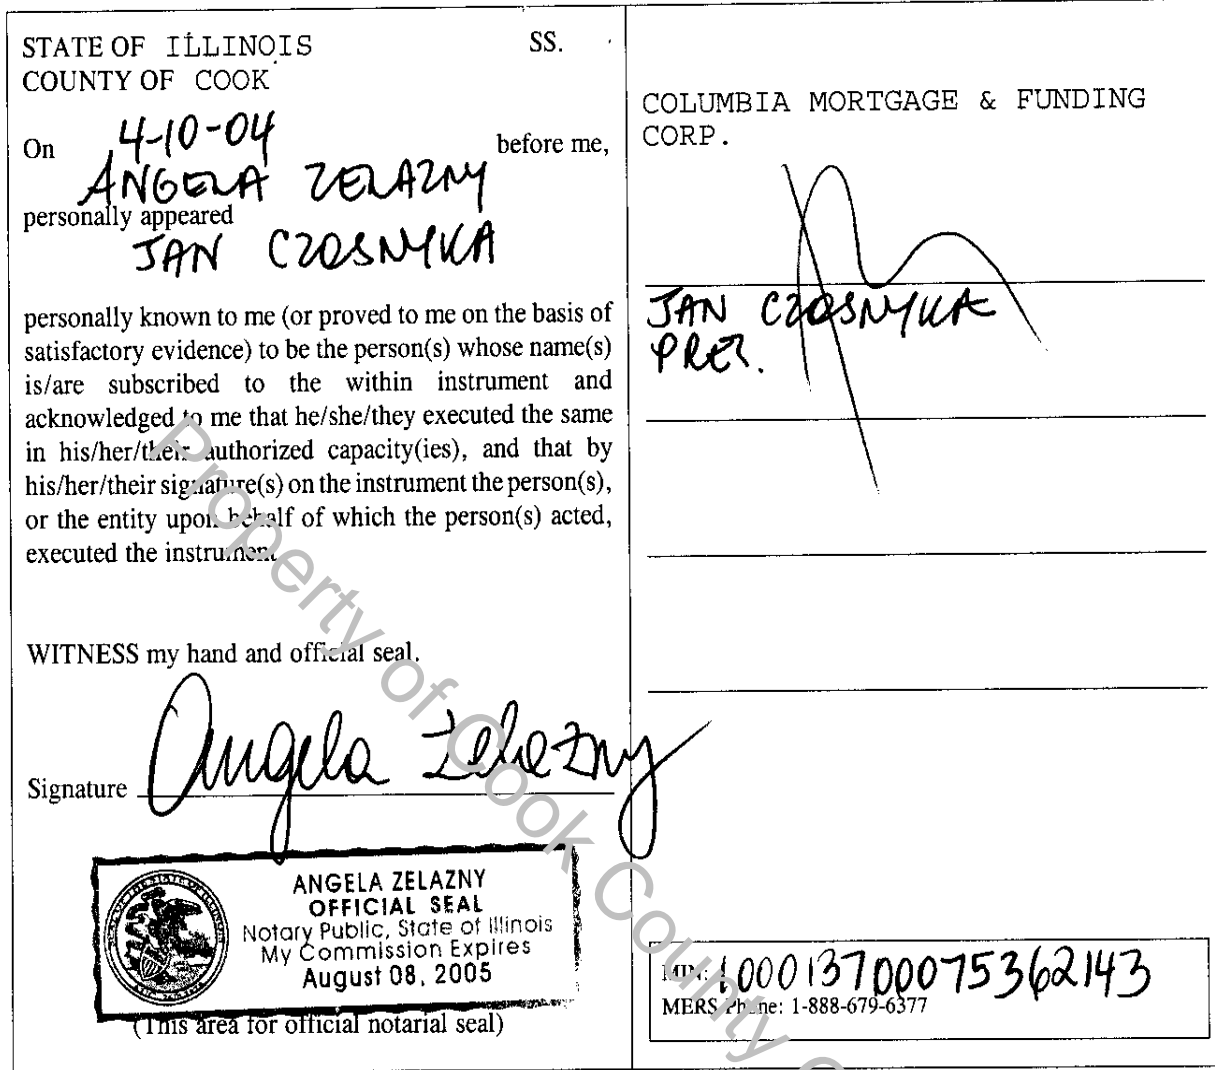 STATE OF ILLINOIS SS.
COUNTY OF COOK
On 4-10-04 before me,
ANGELA ZELAZNY
personally appeared
JAN CZOSNYKA
personally known to me (or proved to me on the basis of
satisfactory evidence) to be the person(s) whose name(s)
is/are subscribed to the within instrument and
acknowledged to me that he/she/they executed the same
in his/her/their authorized capacity(ies), and that by
his/her/their signature(s) on the instrument the person(s),
or the entity upon behalf of which the person(s) acted,
executed the instrument
WITNESS my hand and official seal.
Signature Angela Zelazny
ANGELA ZELAZNY
OFFICIAL SEAL
Notary Public, State of Illinois
My Commission Expires
August 08, 2005
(This area for official notarial seal)
COLUMBIA MORTGAGE & FUNDING
CORP.
JAN CZOSNYKA
PRES.
MIN: 100013700075362143
MERS Phone: 1-888-679-6377
Property of Cook County